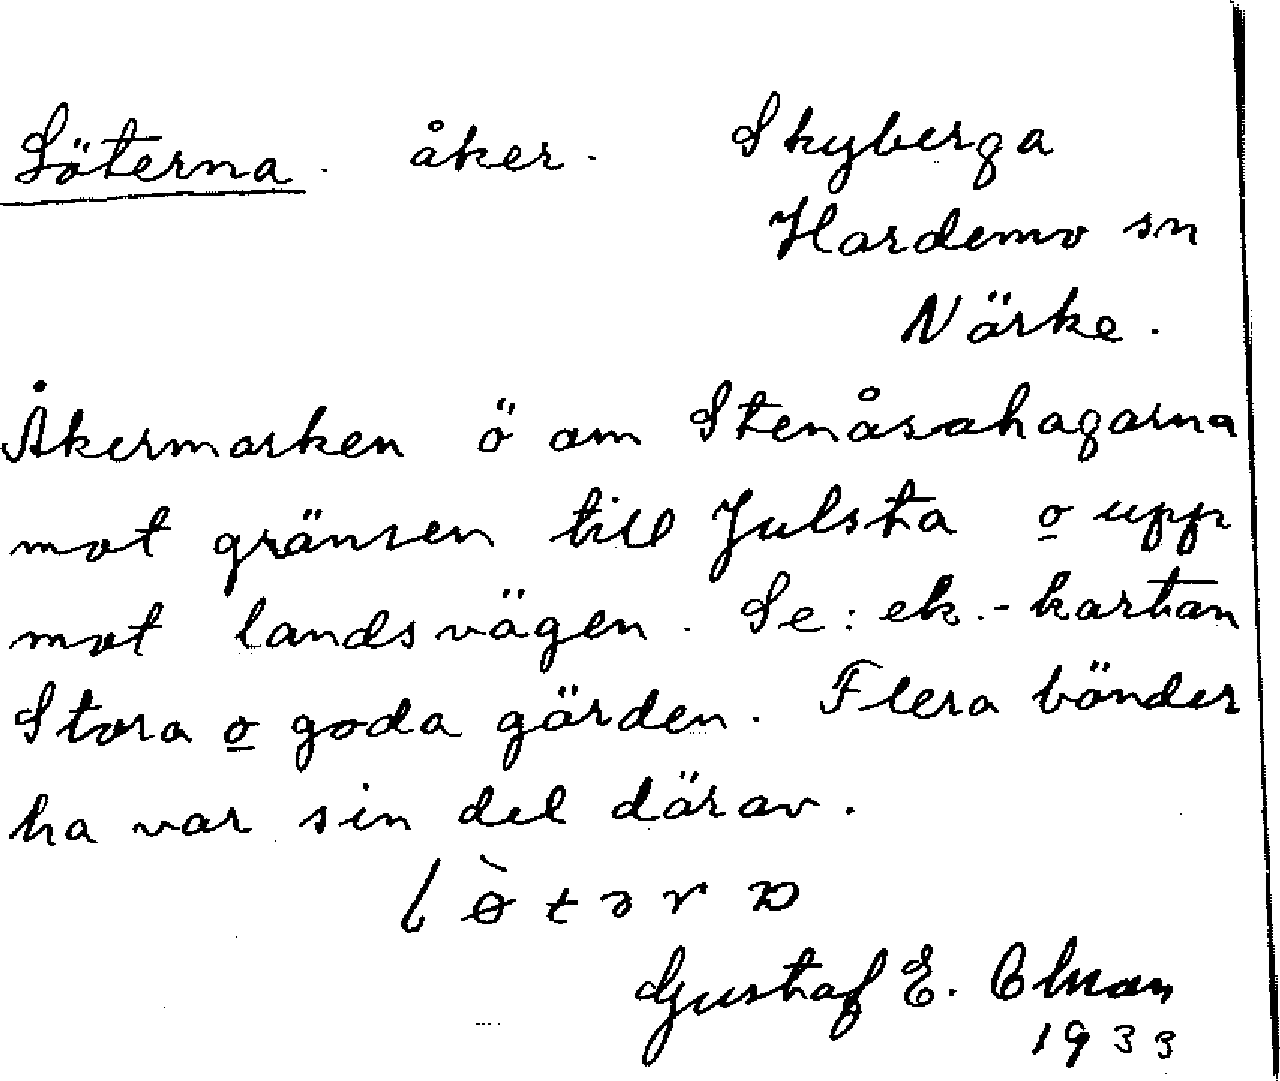 Löterna. åker. Skyberga
Hardemo sn
Närke.
Åkermarken ö om Stenåsahagarna
mot gränsen till Julsta o upp
mot landsvägen. Se: ek.-kartan
Stora o goda gärden. Flera bönder
ha var sin del därav.
Gustaf E.
1933